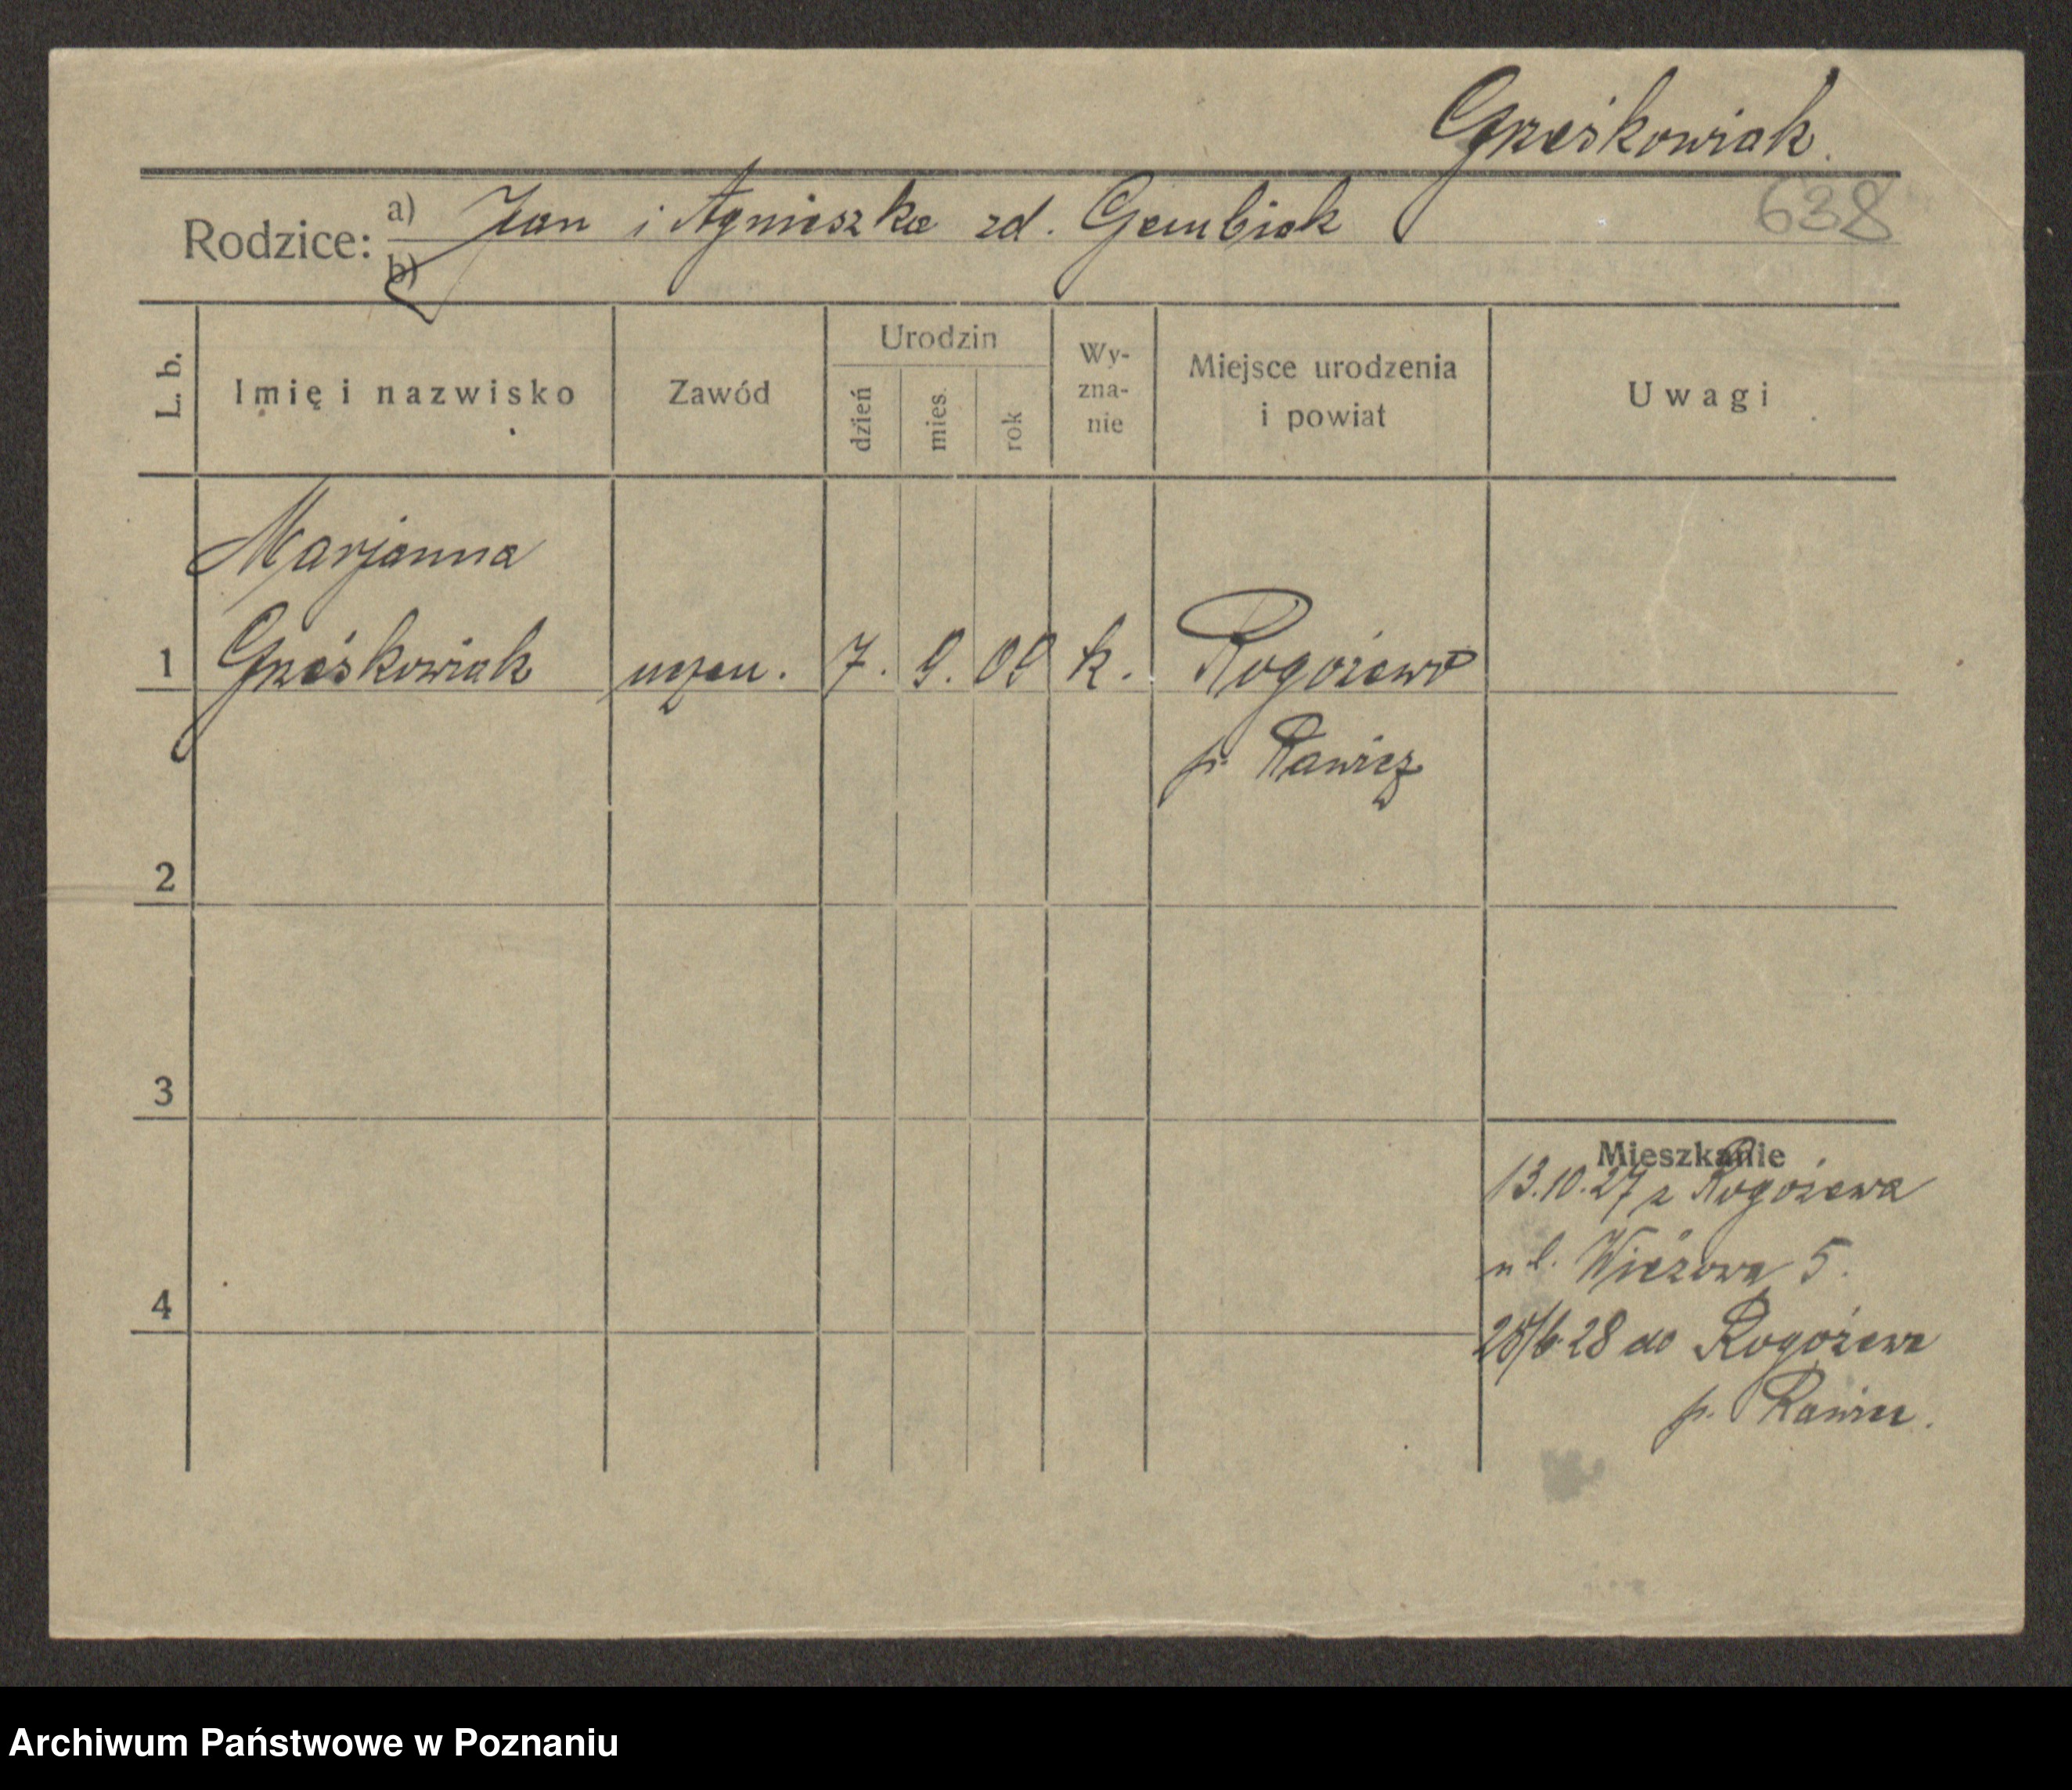 Grześkowiak.
638
Rodzice: a) Jan i Agnieszka zd. Gembiak
b)
L. b.
Imię i nazwisko
Zawód
Urodzin
dzień
mies.
rok
Wy-
zna-
nie
Miejsce urodzenia
i powiat
Uwagi
Marjanna
1 Grześkowiak uczen. 7. 9. 09 k. Rogożewo
p. Rawicz
2
3
4
Mieszkanie
13.10.27 z Rogożewa
ul. Wieżowa 5.
28/6 28 do Rogożewa
p. Rawicz.
Archiwum Państwowe w Poznaniu